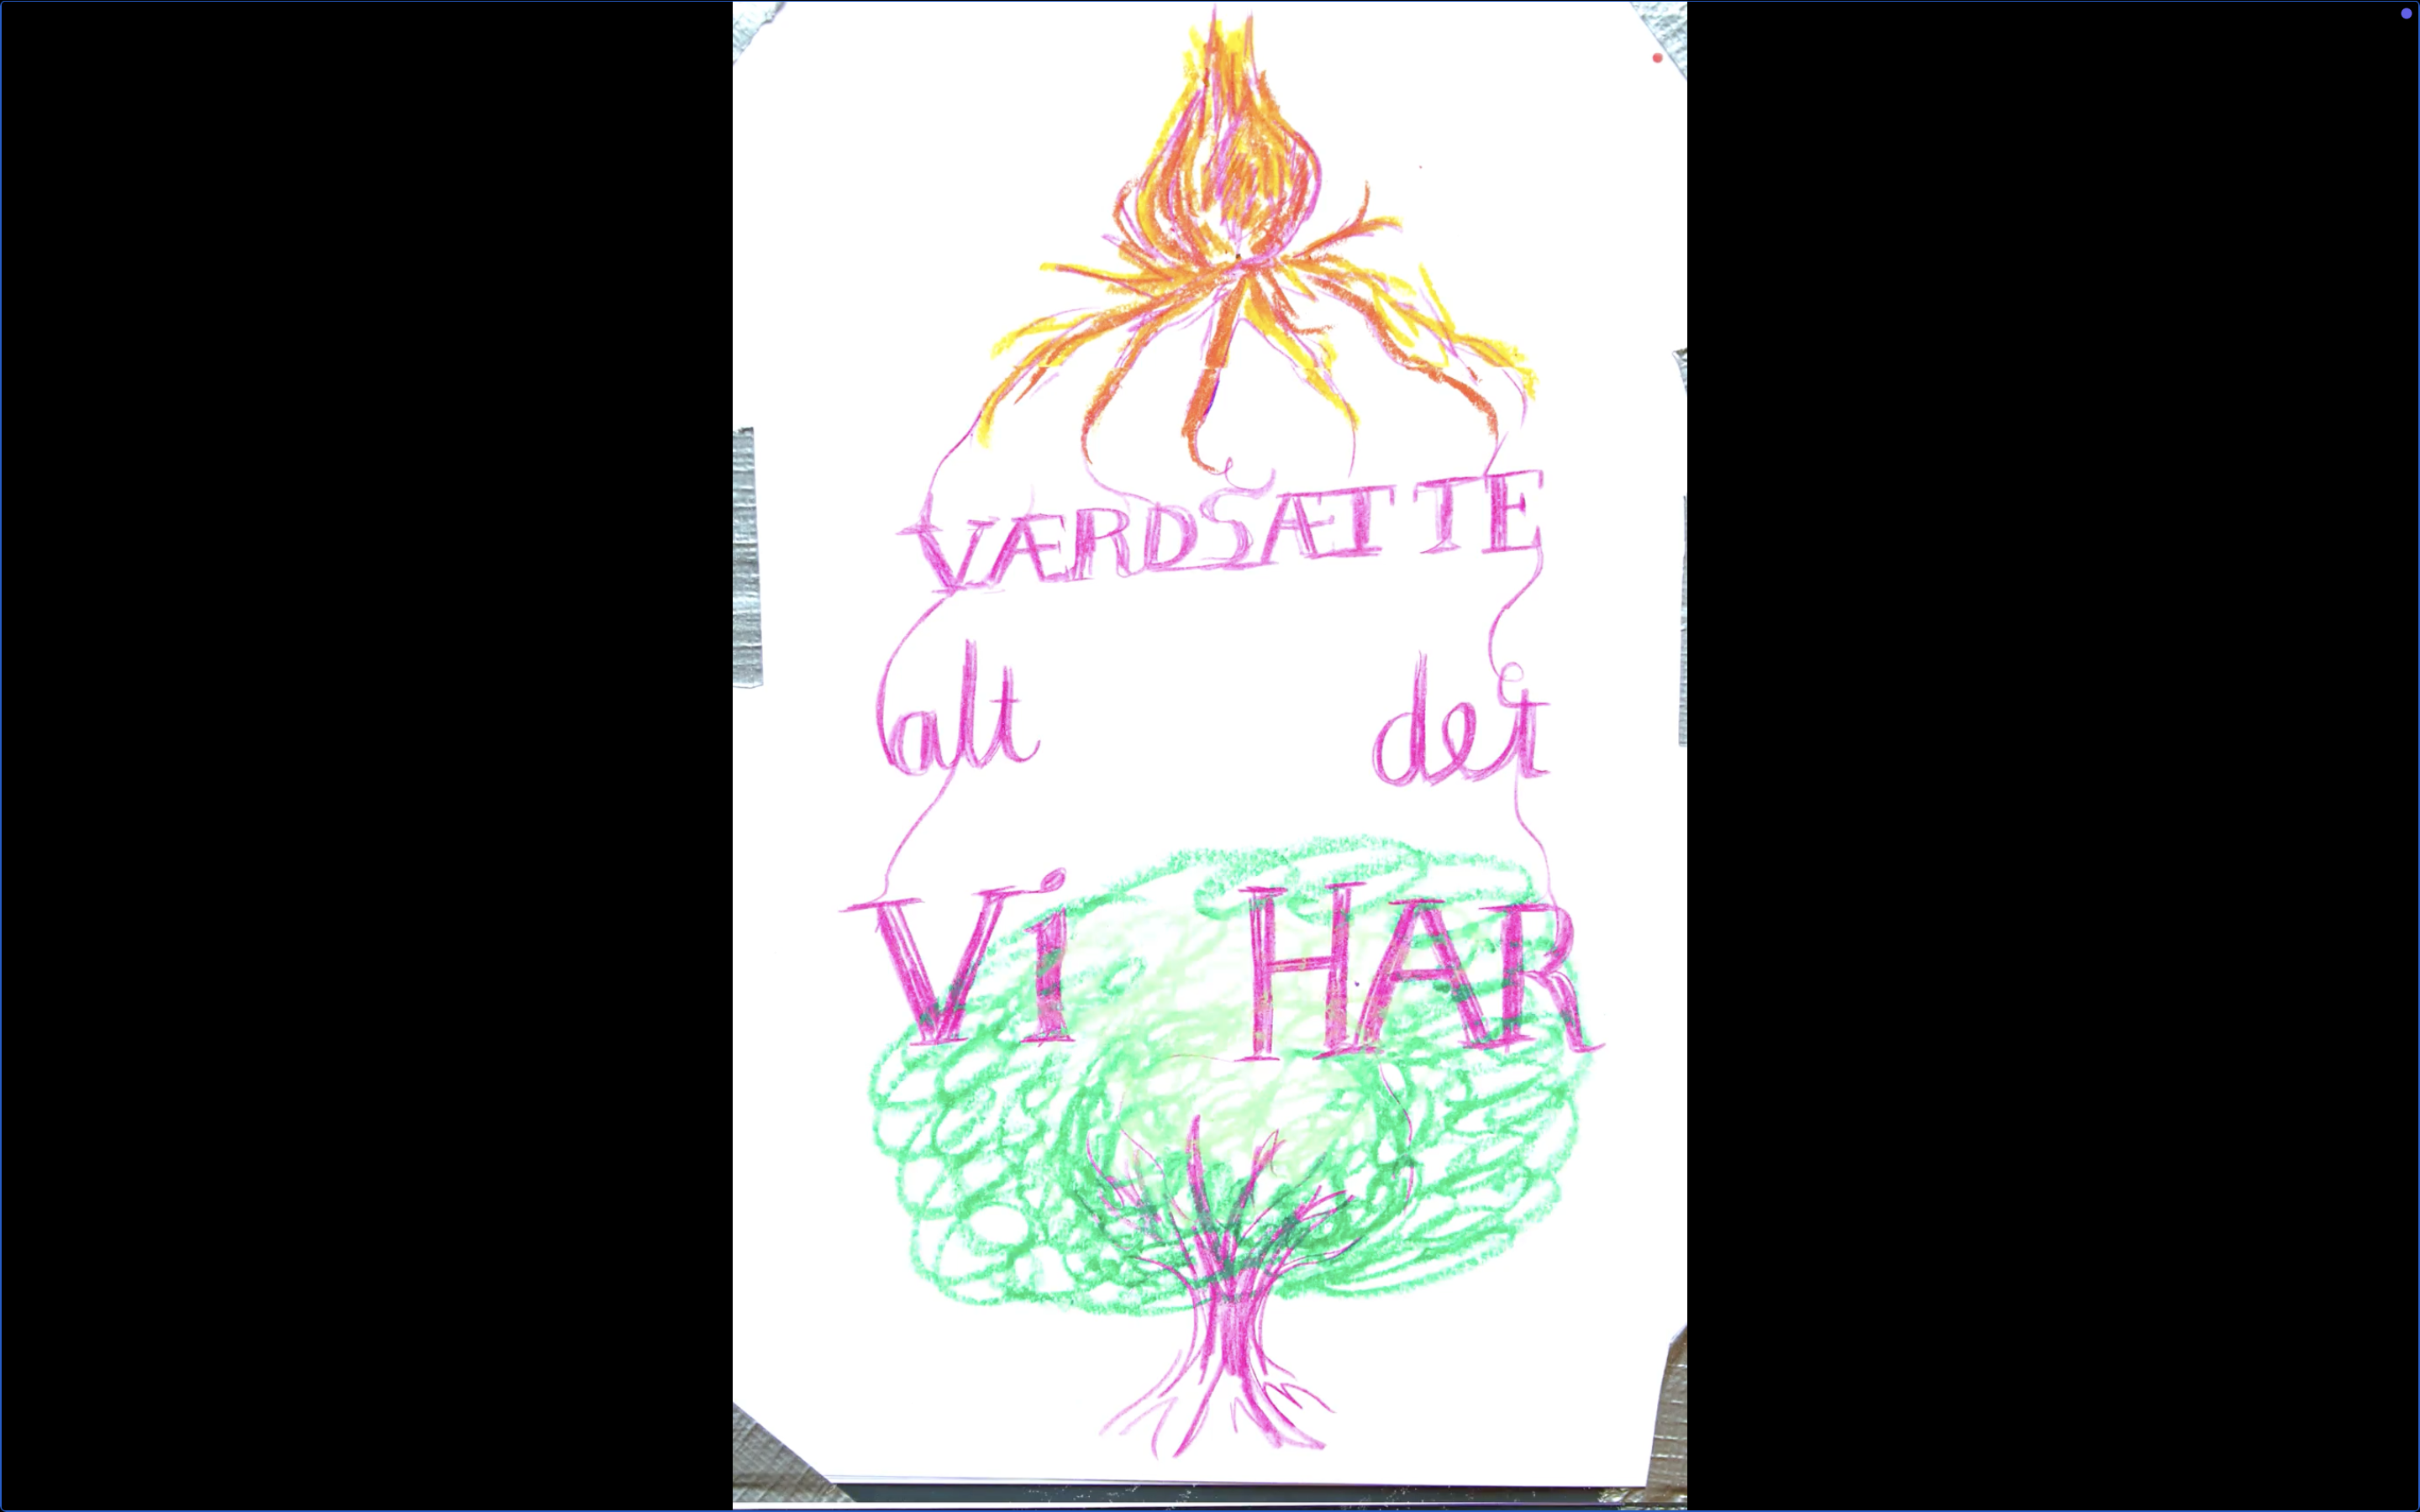 VÆRDSÆTTE
alt det
Vi HAR